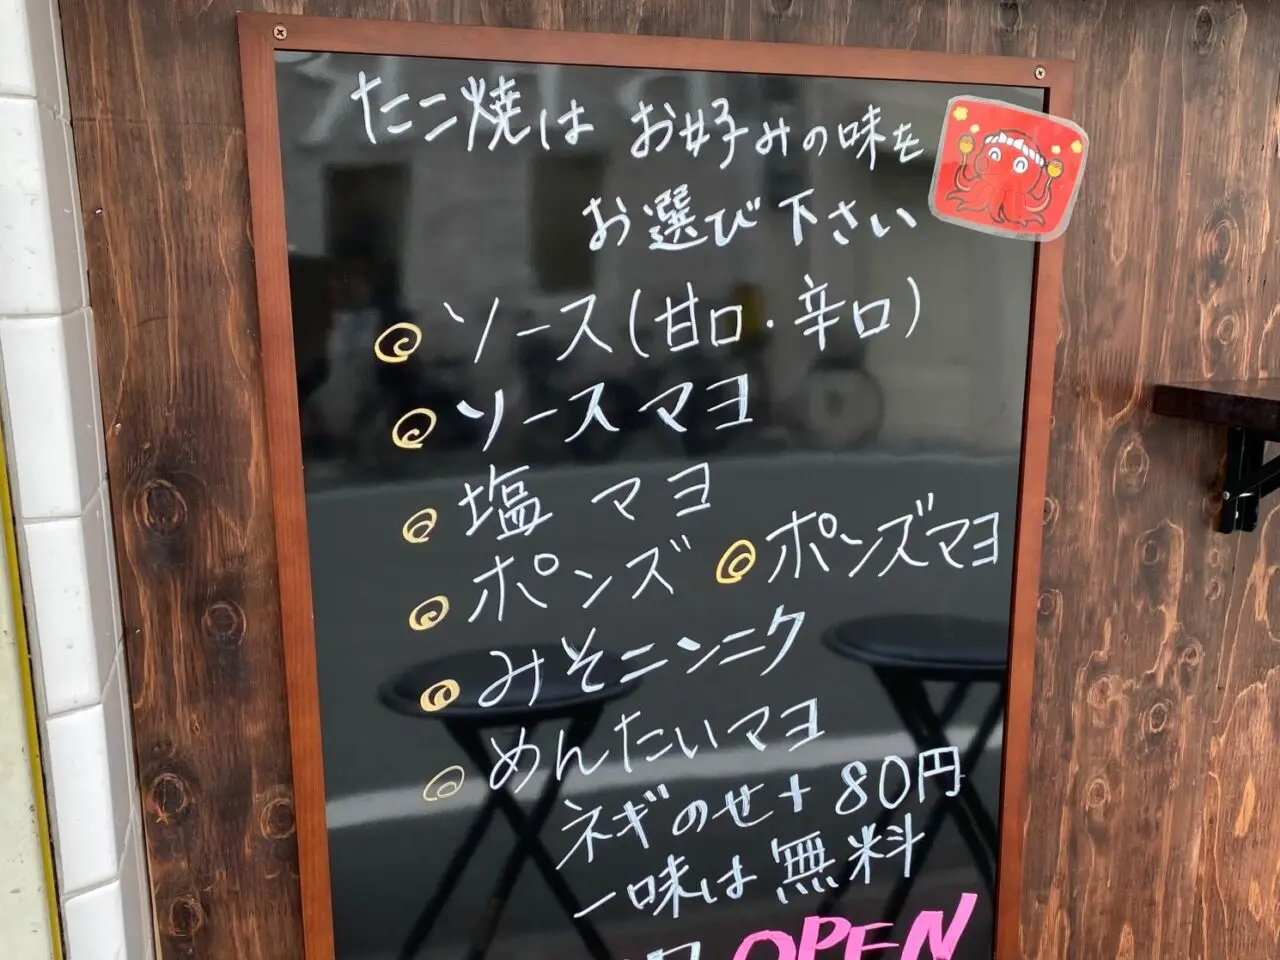 たこ焼は お好みの味を
お選び下さい
ソース(甘口・辛口)
ソースマヨ
塩 マヨ
ポンズ ポンズマヨ
みそニンニク
めんたいマヨ
ネギのせ+80円
一味は無料
OPEN